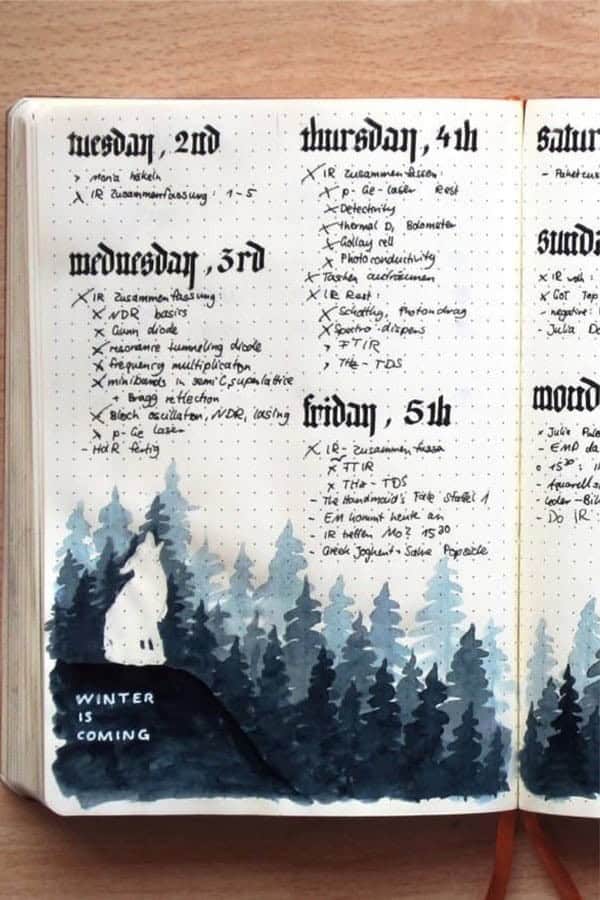 tuesday, 2nd
> Maria häkeln
x IR Zusammenfassung: 1-5
wednesday, 3rd
x IR Zusammenfassung:
x NDR basics
x Gunn diode
x resonance tunneling diode
x frequency multiplication
x minibands in semi C, superlattice
+ Bragg reflection
x Bloch oscillation, NDR, lasing
x p-Ge laser
- HdR fertig
thursday, 4th
x IR zusammenfassen:
x p-Ge-laser Rest
x Detectivity
x thermal D, Bolometer
x Gollay cell
x Photoconductivity
x Taschen ausräumen
x IR Rest:
x Schottky, Photondrag
x Spectro-dispers
> FTIR
> THz-TDS
friday, 5th
x IR-Zusammenfassu
x FTIR
x THz-TDS
- The Handmaid's Tale Staffel 1
- EM kommt heute an
- IR treffen Mo? 15:30
- Greek Joghurt-Salve Popsicle
satur
- Paketzus
sunda
x IR
x GOT Top
- negative:
- Julia Do
mond
x Julia
- EMP da
o 15:30:
- Aquarell
- Leder-Bi
- Do IR:
WINTER
IS
COMING